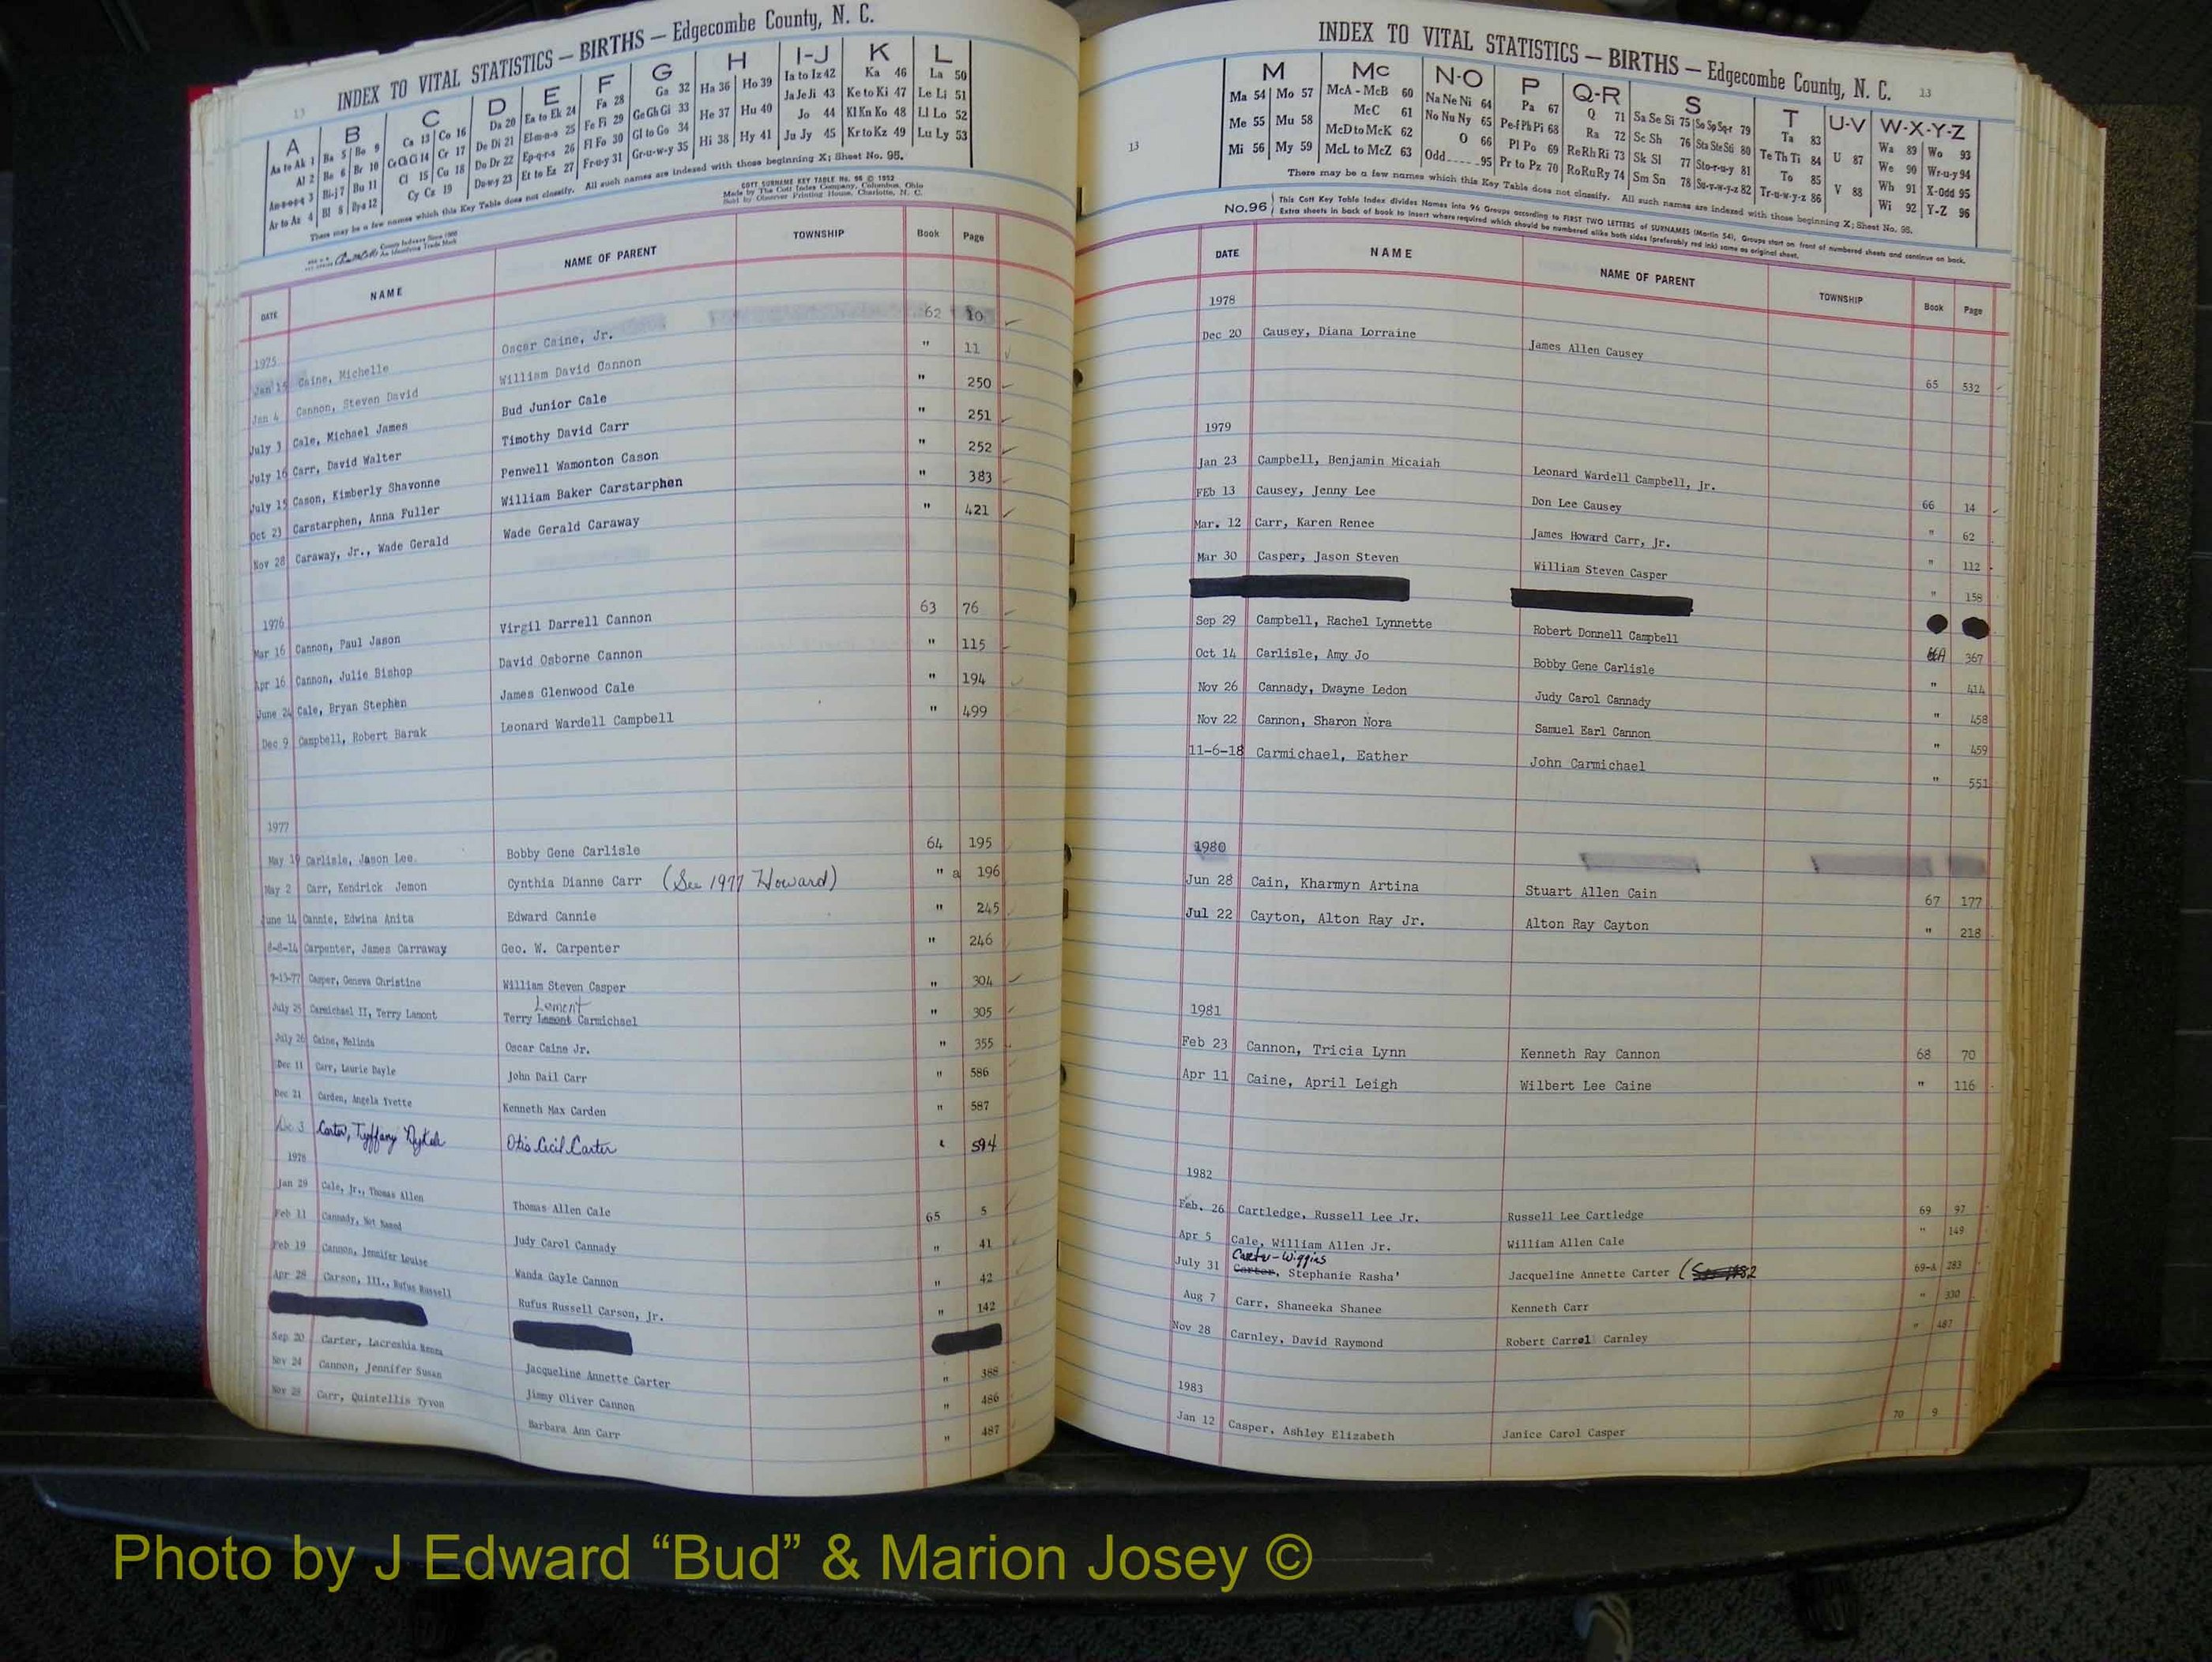 13
INDEX TO VITAL STATISTICS — BIRTHS — Edgecombe County, N. C.
A B C D E F G H I-J K L
Aa to Ak 1 Ba 5 Be 9 Ca 13 Co 16 Da 20 Ea to Ek 24 Fa 28 Ga 32 Ha 36 Ho 39 Ia to Iz 42 Ka 46 La 50
Al 2 Be 6 Br 10 Ce Ch Ci 14 Cr 17 De Di 21 El-m-n-o 25 Fe Fi 29 Ge Gh Gi 33 He 37 Hu 40 Ja Je Ji 43 Ke to Ki 47 Le Li 51
Am-n-o-p-q 3 Bi-j 7 Bu 11 Cl 15 Cu 18 Do Dr 22 Ep-q-r-s 26 Fl Fo 30 Gl to Go 34 Hi 38 Hy 41 Jo 44 Kl Kn Ko 48 Ll Lo 52
Ar to Az 4 Bl 8 By-z 12 Cy Cz 19 Du-w-y 23 Et to Ez 27 Fr-u-y 31 Gr-u-w-y 35 Ju Jy 45 Kr to Kz 49 Lu Ly 53
There may be a few names which this Key Table does not classify. All such names are indexed with those beginning X; Sheet No. 95.
COTT SURNAME KEY TABLE No. 96 © 1952
Made by The Cott Index Company, Columbus, Ohio
Sold by Observer Printing House, Charlotte, N. C.
County Indexes Since 1888
An Identifying Trade Mark
DATE NAME NAME OF PARENT TOWNSHIP Book Page
1975
Jan 15 Caine, Michelle Oscar Caine, Jr. 62 10
Jan 4 Cannon, Steven David William David Cannon " 11
July 3 Cale, Michael James Bud Junior Cale " 250
July 16 Carr, David Walter Timothy David Carr " 251
July 15 Cason, Kimberly Shavonne Penwell Wamonton Cason " 252
Oct 23 Carstarphen, Anna Fuller William Baker Carstarphen " 383
Nov 28 Caraway, Jr., Wade Gerald Wade Gerald Caraway " 421
1976
Mar 16 Cannon, Paul Jason Virgil Darrell Cannon 63 76
Apr 16 Cannon, Julie Bishop David Osborne Cannon " 115
June 24 Cale, Bryan Stephen James Glenwood Cale " 194
Dec 9 Campbell, Robert Barak Leonard Wardell Campbell " 499
1977
May 19 Carlisle, Jason Lee Bobby Gene Carlisle 64 195
May 2 Carr, Kendrick Jemon Cynthia Dianne Carr (See 1977 Howard) " a 196
June 14 Cannie, Edwina Anita Edward Cannie " 245
8-8-14 Carpenter, James Carraway Geo. W. Carpenter " 246
7-13-77 Casper, Geneva Christine William Steven Casper " 304
Lamont
July 25 Carmichael II, Terry Lamont Terry Lamont Carmichael " 305
July 26 Caine, Melinda Oscar Caine Jr. " 355
Dec 11 Carr, Laurie Dayle John Dail Carr " 586
Dec 21 Carden, Angela Yvette Kenneth Max Carden " 587
Dec 3 Carter, Tyffany Otis Cecil Carter 594
1978
Jan 29 Cale, Jr., Thomas Allen Thomas Allen Cale 65 5
Feb 11 Cannady, Not Named Judy Carol Cannady " 41
Feb 19 Cannon, Jennifer Louise Wanda Gayle Cannon " 42
Apr 28 Carson, III., Rufus Russell Rufus Russell Carson, Jr. " 142
Sep 20 Carter, Lacreshia Renea Jacqueline Annette Carter " 388
Nov 24 Cannon, Jennifer Susan Jimmy Oliver Cannon " 486
Nov 28 Carr, Quintellis Tyvon Barbara Ann Carr " 487
INDEX TO VITAL STATISTICS — BIRTHS — Edgecombe County, N. C. 13
13
M Mc N-O P Q-R S T U-V W-X-Y-Z
Ma 54 Mo 57 McA - McB 60 Na Ne Ni 64 Pa 67 Q 71 Sa Se Si 75 So Sp Sq-r 79 Ta 83 U 87 Wa 89 Wo 93
Me 55 Mu 58 McC 61 No Nu Ny 65 Pe-f Ph Pi 68 Ra 72 Sc Sh 76 Sta Ste Sti 80 Te Th Ti 84 V 88 We 90 Wr-u-y 94
Mi 56 My 59 McD to McK 62 O 66 Pl Po 69 Re Rh Ri 73 Sk Sl 77 Sto-r-u-y 81 To 85 Wh 91 X-Odd 95
McL to McZ 63 Odd 95 Pr to Pz 70 Ro Ru Ry 74 Sm Sn 78 Su-v-w-y-z 82 Tr-u-w-y-z 86 Wi 92 Y-Z 96
There may be a few names which this Key Table does not classify. All such names are indexed with those beginning X; Sheet No. 95.
No. 96 This Cott Key Table Index divides Names into 96 Groups according to FIRST TWO LETTERS of SURNAMES (Martin 54). Groups start on front of numbered sheets and continue on back.
Extra sheets in back of book to insert where required which should be numbered alike both sides (preferably red ink) same as original sheet.
DATE NAME NAME OF PARENT TOWNSHIP Book Page
1978
Dec 20 Causey, Diana Lorraine James Allen Causey 65 532
1979
Jan 23 Campbell, Benjamin Micaiah Leonard Wardell Campbell, Jr. 66 14
FEb 13 Causey, Jenny Lee Don Lee Causey " 62
Mar. 12 Carr, Karen Renee James Howard Carr, Jr. " 112
Mar 30 Casper, Jason Steven William Steven Casper " 158
Sep 29 Campbell, Rachel Lynnette Robert Donnell Campbell 66A 367
Oct 14 Carlisle, Amy Jo Bobby Gene Carlisle " 414
Nov 26 Cannady, Dwayne Ledon Judy Carol Cannady " 458
Nov 22 Cannon, Sharon Nora Samuel Earl Cannon " 459
11-6-18 Carmichael, Eather John Carmichael " 551
1980
Jun 28 Cain, Kharmyn Artina Stuart Allen Cain 67 177
Jul 22 Cayton, Alton Ray Jr. Alton Ray Cayton " 218
1981
Feb 23 Cannon, Tricia Lynn Kenneth Ray Cannon 68 70
Apr 11 Caine, April Leigh Wilbert Lee Caine " 116
1982
Feb. 26 Cartledge, Russell Lee Jr. Russell Lee Cartledge 69 97
Apr 5 Cale, William Allen Jr. William Allen Cale " 149
Carter-Wiggins
July 31 Carter, Stephanie Rasha' Jacqueline Annette Carter 69-a 283
Aug 7 Carr, Shaneeka Shanee Kenneth Carr " 330
Nov 28 Carnley, David Raymond Robert Carrol Carnley " 487
1983
Jan 12 Casper, Ashley Elizabeth Janice Carol Casper 70 9
Photo by J Edward “Bud” & Marion Josey ©